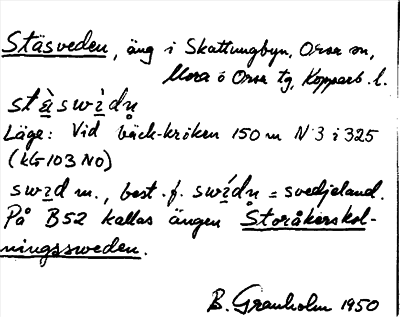 Stäsveden, äng i Skattungbyn, Orsa sn,
Mora o Orsa tg, Kopparb. l.
stä̀swìdn̥
Läge: Vid bäck-kröken 150 m N 3 i 325
(KG 103 NO)
swɪd m., best. f. swɪ́dn̥ = svedjeland.
På B52 kallas ängen Storåkerskol-
ningssweden.
B. Granholm 1950